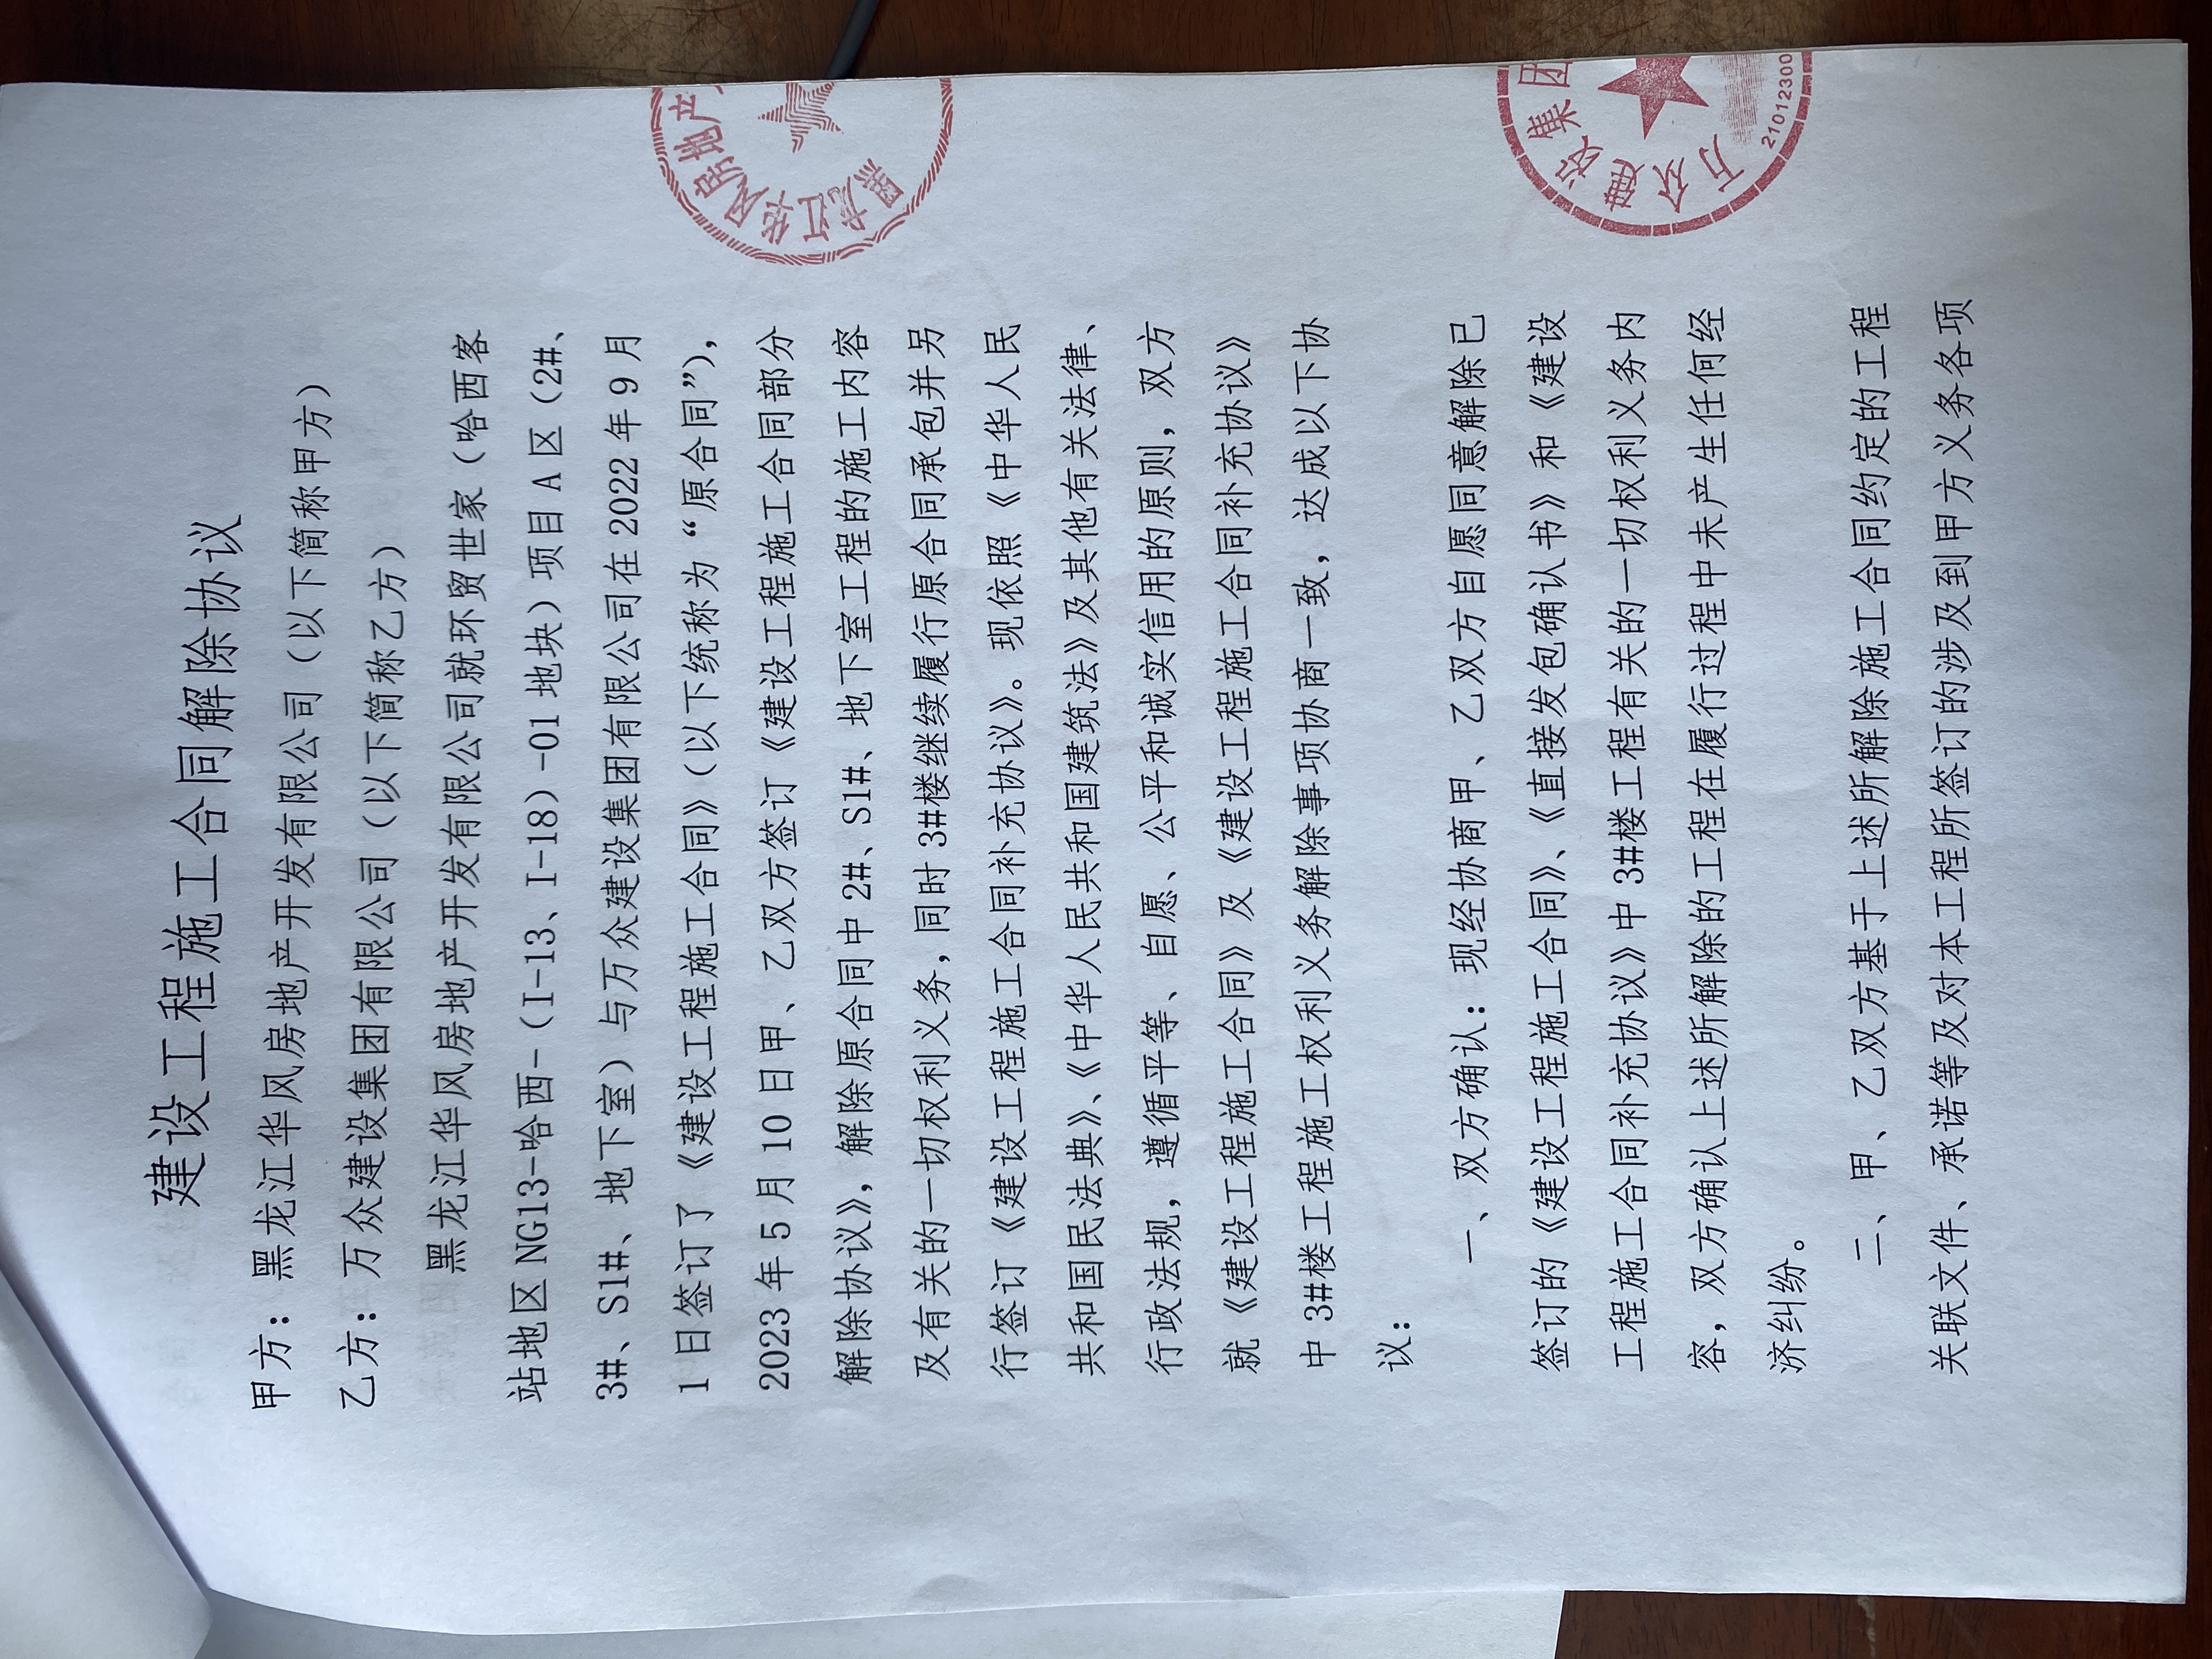 建设工程施工合同解除协议
甲方：黑龙江华风房地产开发有限公司（以下简称甲方）
乙方：万众建设集团有限公司（以下简称乙方）
黑龙江华风房地产开发有限公司就环贸世家（哈西客
站地区 NG13-哈西-（I-13、I-18）-01 地块）项目 A 区（2#、
3#、S1#、地下室）与万众建设集团有限公司在 2022 年 9 月
1 日签订了《建设工程施工合同》（以下统称为“原合同”），
2023 年 5 月 10 日甲、乙双方签订《建设工程施工合同部分
解除协议》，解除原合同中 2#、S1#、地下室工程的施工内容
及有关的一切权利义务，同时 3#楼继续履行原合同承包并另
行签订《建设工程施工合同补充协议》。现依照《中华人民
共和国民法典》、《中华人民共和国建筑法》及其他有关法律、
行政法规，遵循平等、自愿、公平和诚实信用的原则，双方
就《建设工程施工合同》及《建设工程施工合同补充协议》
中 3#楼工程施工权利义务解除事项协商一致，达成以下协
议：
一、双方确认：现经协商甲、乙双方自愿同意解除已
签订的《建设工程施工合同》、《直接发包确认书》和《建设
工程施工合同补充协议》中 3#楼工程有关的一切权利义务内
容，双方确认上述所解除的工程在履行过程中未产生任何经
济纠纷。
二、甲、乙双方基于上述所解除施工合同约定的工程
关联文件、承诺等及对本工程所签订的涉及到甲方义务各项
黑龙江华风房地产
万众建设集团
21012300